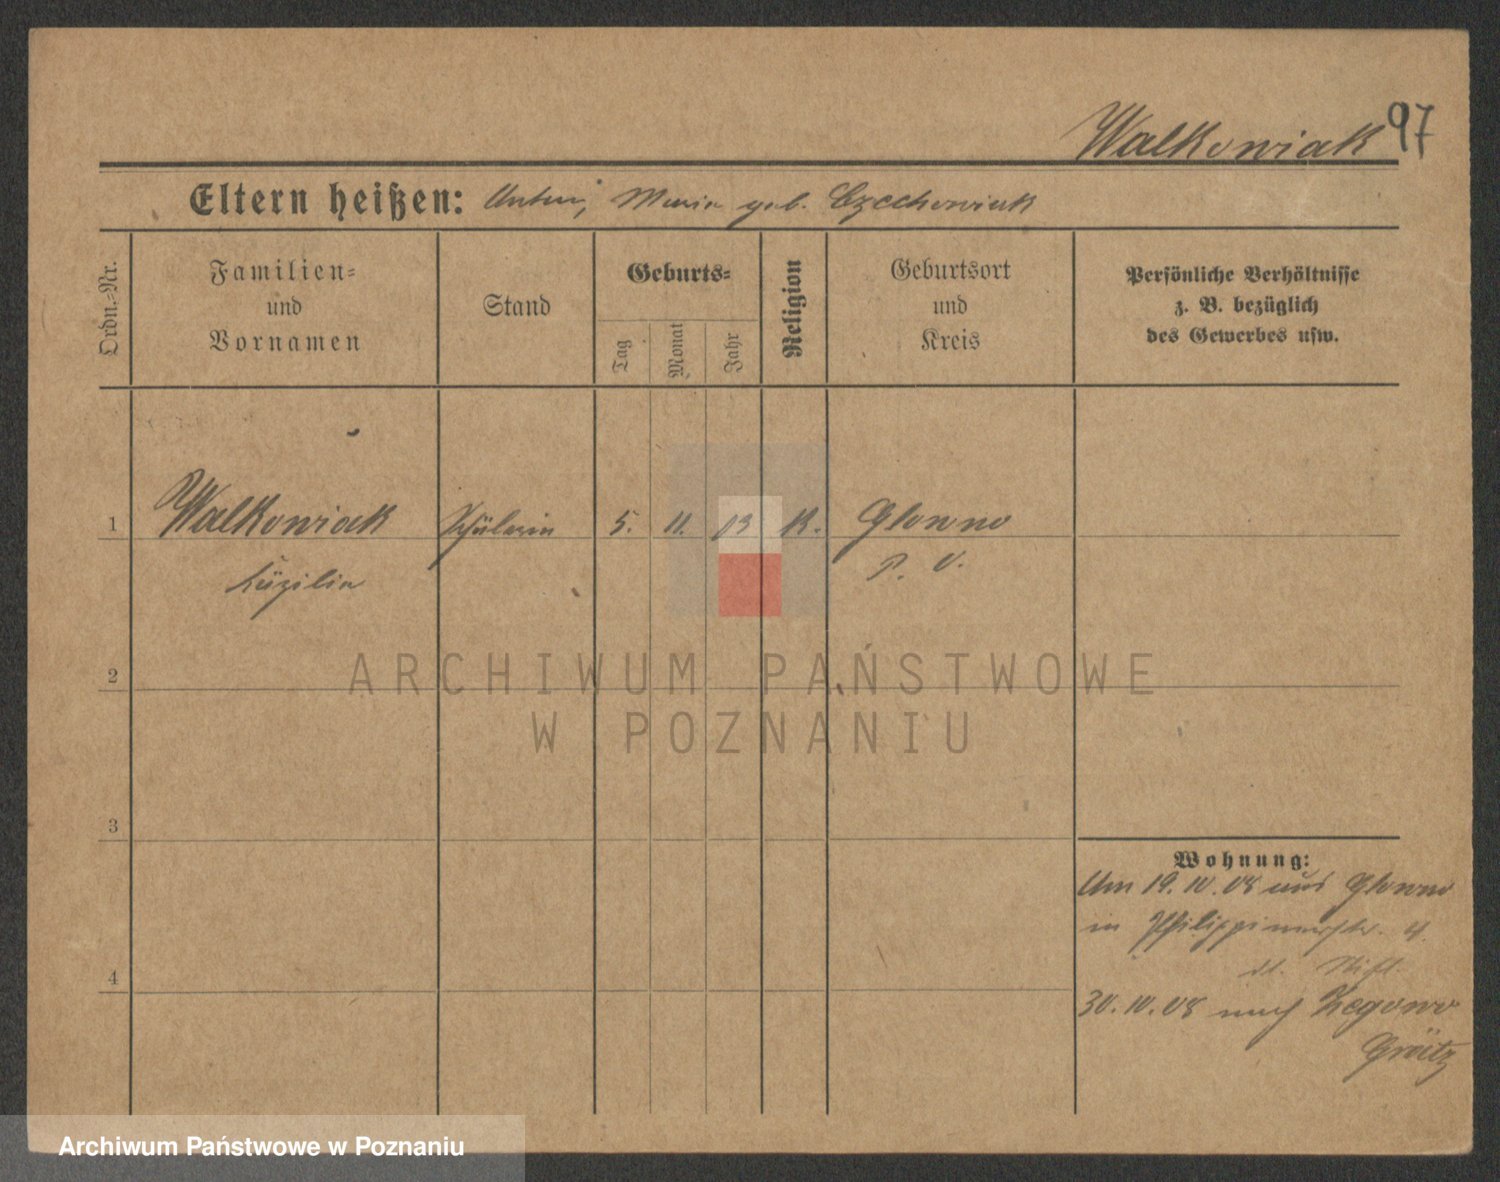 Walkowiak 97
Eltern heißen: Anton, Maria geb. Czechowiak
Ordn.-Nr.
Familien-
und
Vornamen
Stand
Geburts-
Tag
Monat
Jahr
Religion
Geburtsort
und
Kreis
Persönliche Verhältnisse
z. B. bezüglich
des Gewerbes usw.
1 Walkowiak Schülerin 5. 11. 93 K. Glowno
Cäzilia P. O.
2
3
4
Wohnung:
Am 19.10.08 aus Glowno
in
30.10.08 nach Zegowo
Grätz
ARCHIWUM PAŃSTWOWE
W POZNANIU
Archiwum Państwowe w Poznaniu